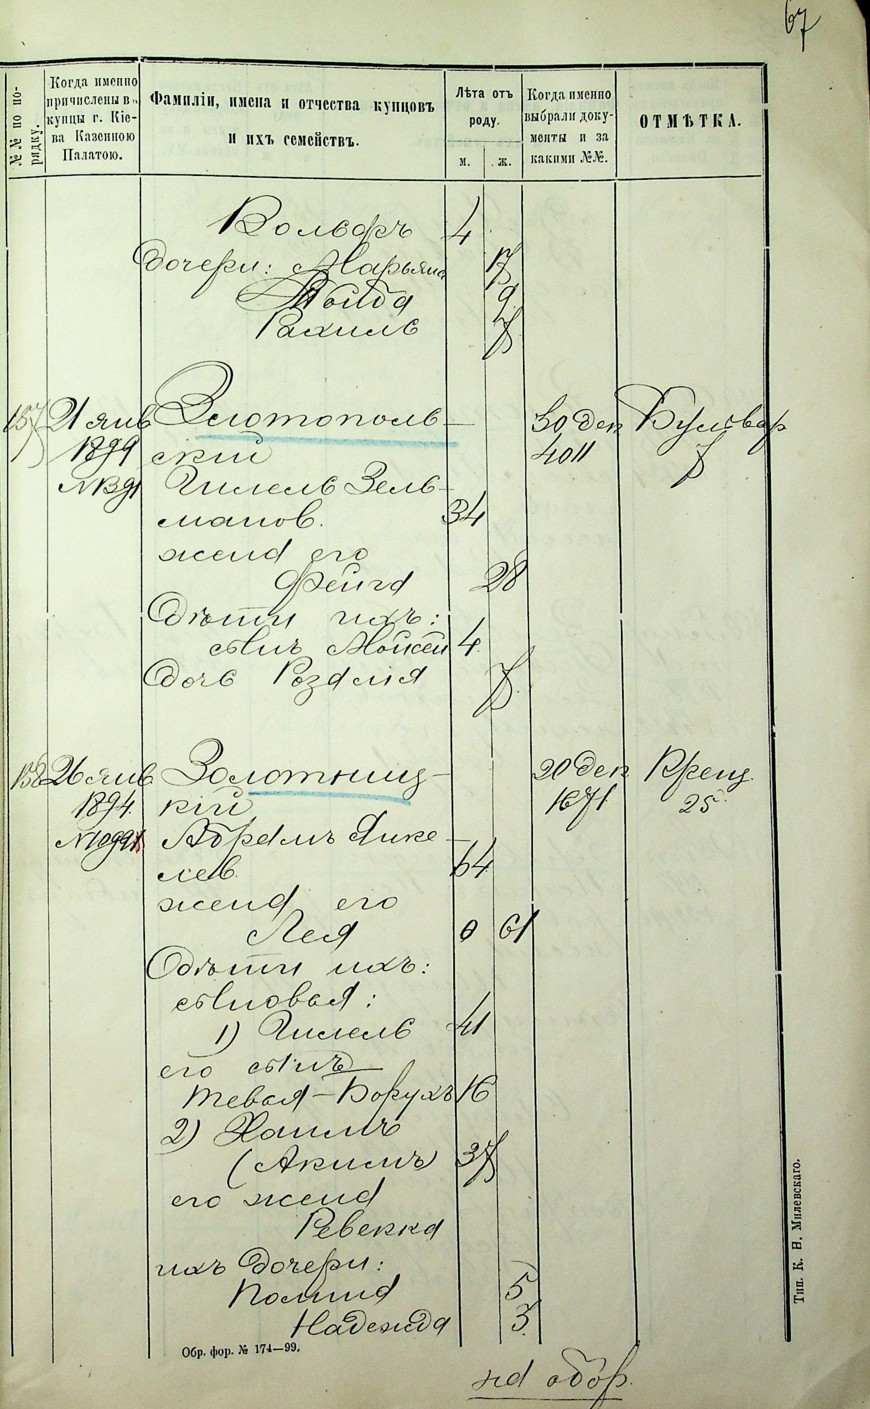 67
№№ по по-
рядку.
Когда именно
причислены в
купцы г. Кіе-
ва Казенною
Палатою.
Фамиліи, имена и отчества купцовъ
и ихъ семействъ.
Лѣта отъ
роду.
м. ж.
Когда именно
выбрали доку-
менты и за
какими №№.
ОТМѢТКА.
Вольфъ 4
дочери: Марьяна
9
Рахиль 7
157 21 янв Златополь- 30 дек Бульвар
1899 скій 4011 7
Гилель Зель-
манов. 34
жена его
Фейга 28
Дѣти ихъ:
сынъ Мойсей 4
Дочь Розалія 7
158 26 янв Золотниц- 20 дек Крещ.
1894 кій 1671 25
Абрамъ Янке-
лев. 64
жена его
Лея 61
Дѣти ихъ:
сыновья:
1) Гилель 41
его сынъ
Тевья-Борухъ 16
2) Хаимъ
(Акимъ) 37
его жена
Ревекка
ихъ дочери:
Полина 5
Надежда 3
Обр. фор. № 174—99.
на обор.
Тип. К. Н. Милевскаго.